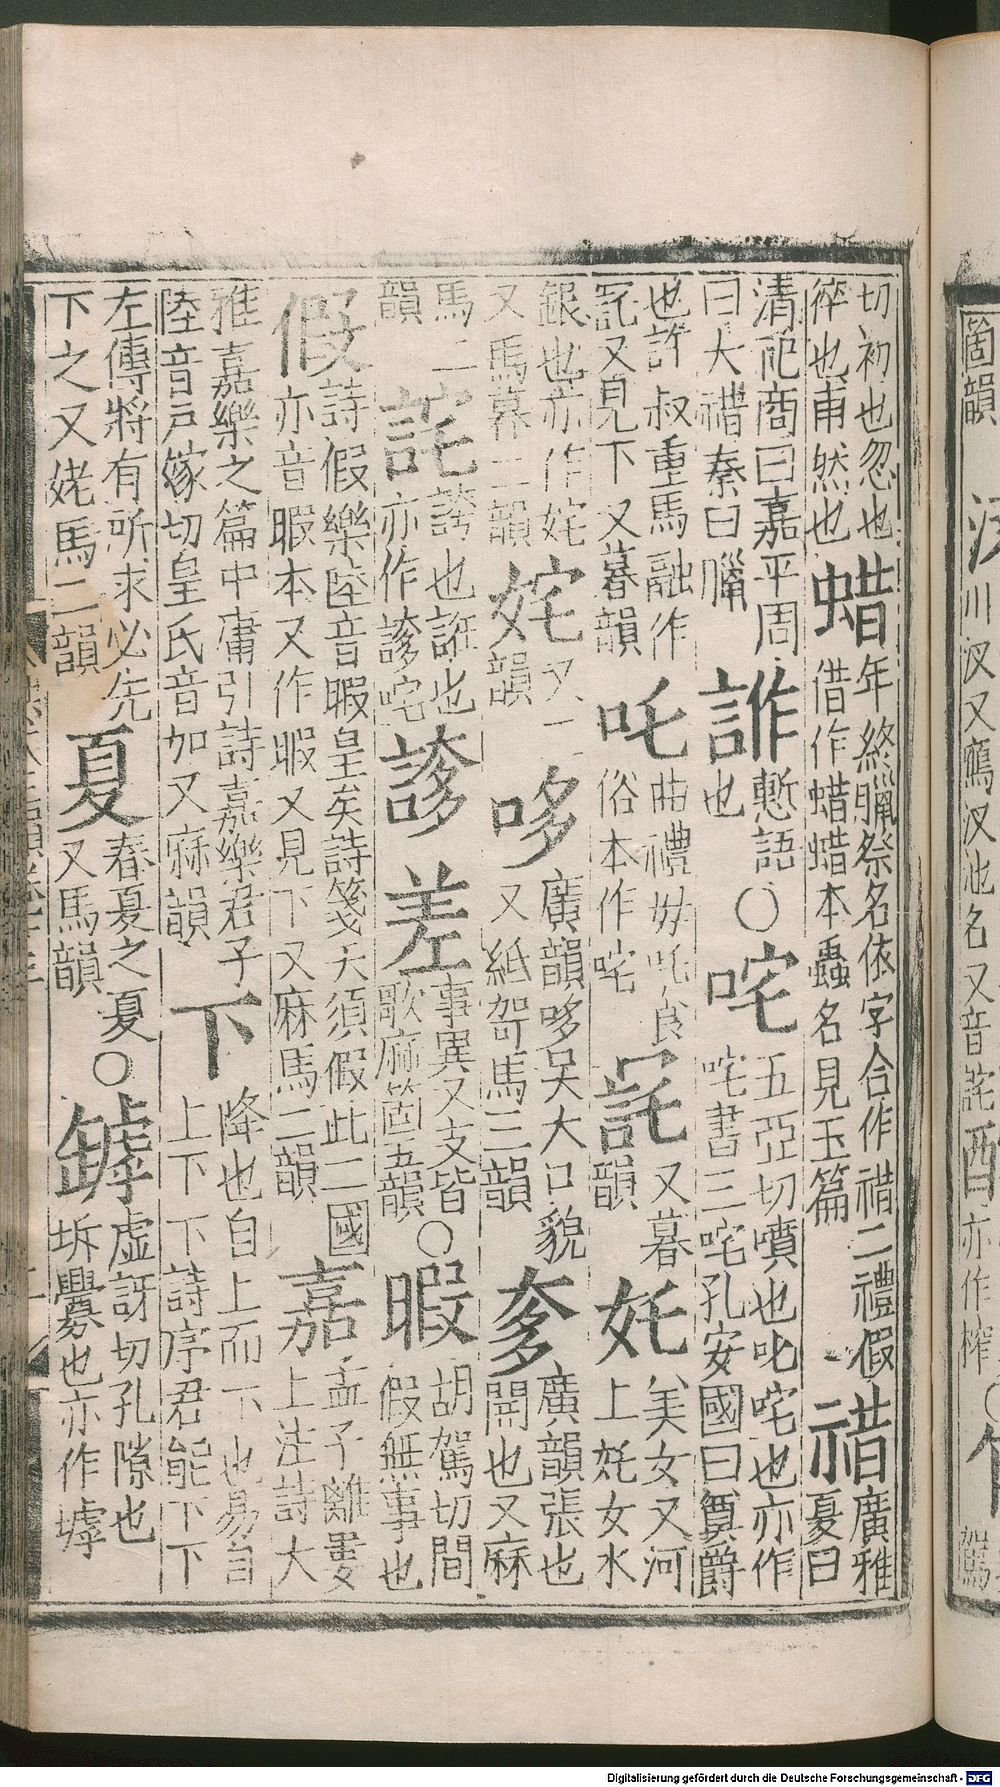 箇韻
川汊又鷹汊池名又音詫
亦作榨○
駕
切初也忽也倅也甫然也蜡年終臘祭名依字合作䄍二禮假借作蜡蜡本蟲名見玉篇䄍廣雅夏曰
清祀商曰嘉平周曰大䄍秦曰臘詐慙語也○咤五亞切噴也叱咤也亦作咤書三咤孔安國曰奠爵
也許叔重馬融作詫又見下又暮韻吒曲禮毋吒食俗本作咤詫又暮韻奼美女又河上奼女水
銀也亦作姹又馬暮二韻姹又韻哆廣韻哆吴大口貌又紙哿馬三韻奓廣韻張也開也又麻
馬二韻詫誇也誑也亦作謻咤謻差事異又支皆歌麻箇五韻○暇胡駕切閒假無事也
假詩假樂陸音暇皇矣詩箋天須假此二國亦音暇本又作暇又見下又麻馬二韻嘉孟子離婁上注詩大
雅嘉樂之篇中庸引詩嘉樂君子陸音戶嫁切皇氏音加又麻韻下降也自上而下也易自上下下詩序君能下下
左傳將有所求必先下之又姥馬二韻夏春夏之夏又馬韻○罅虛訝切孔隙也坼釁也亦作㙤
Digitalisierung gefördert durch die Deutsche Forschungsgemeinschaft - DFG